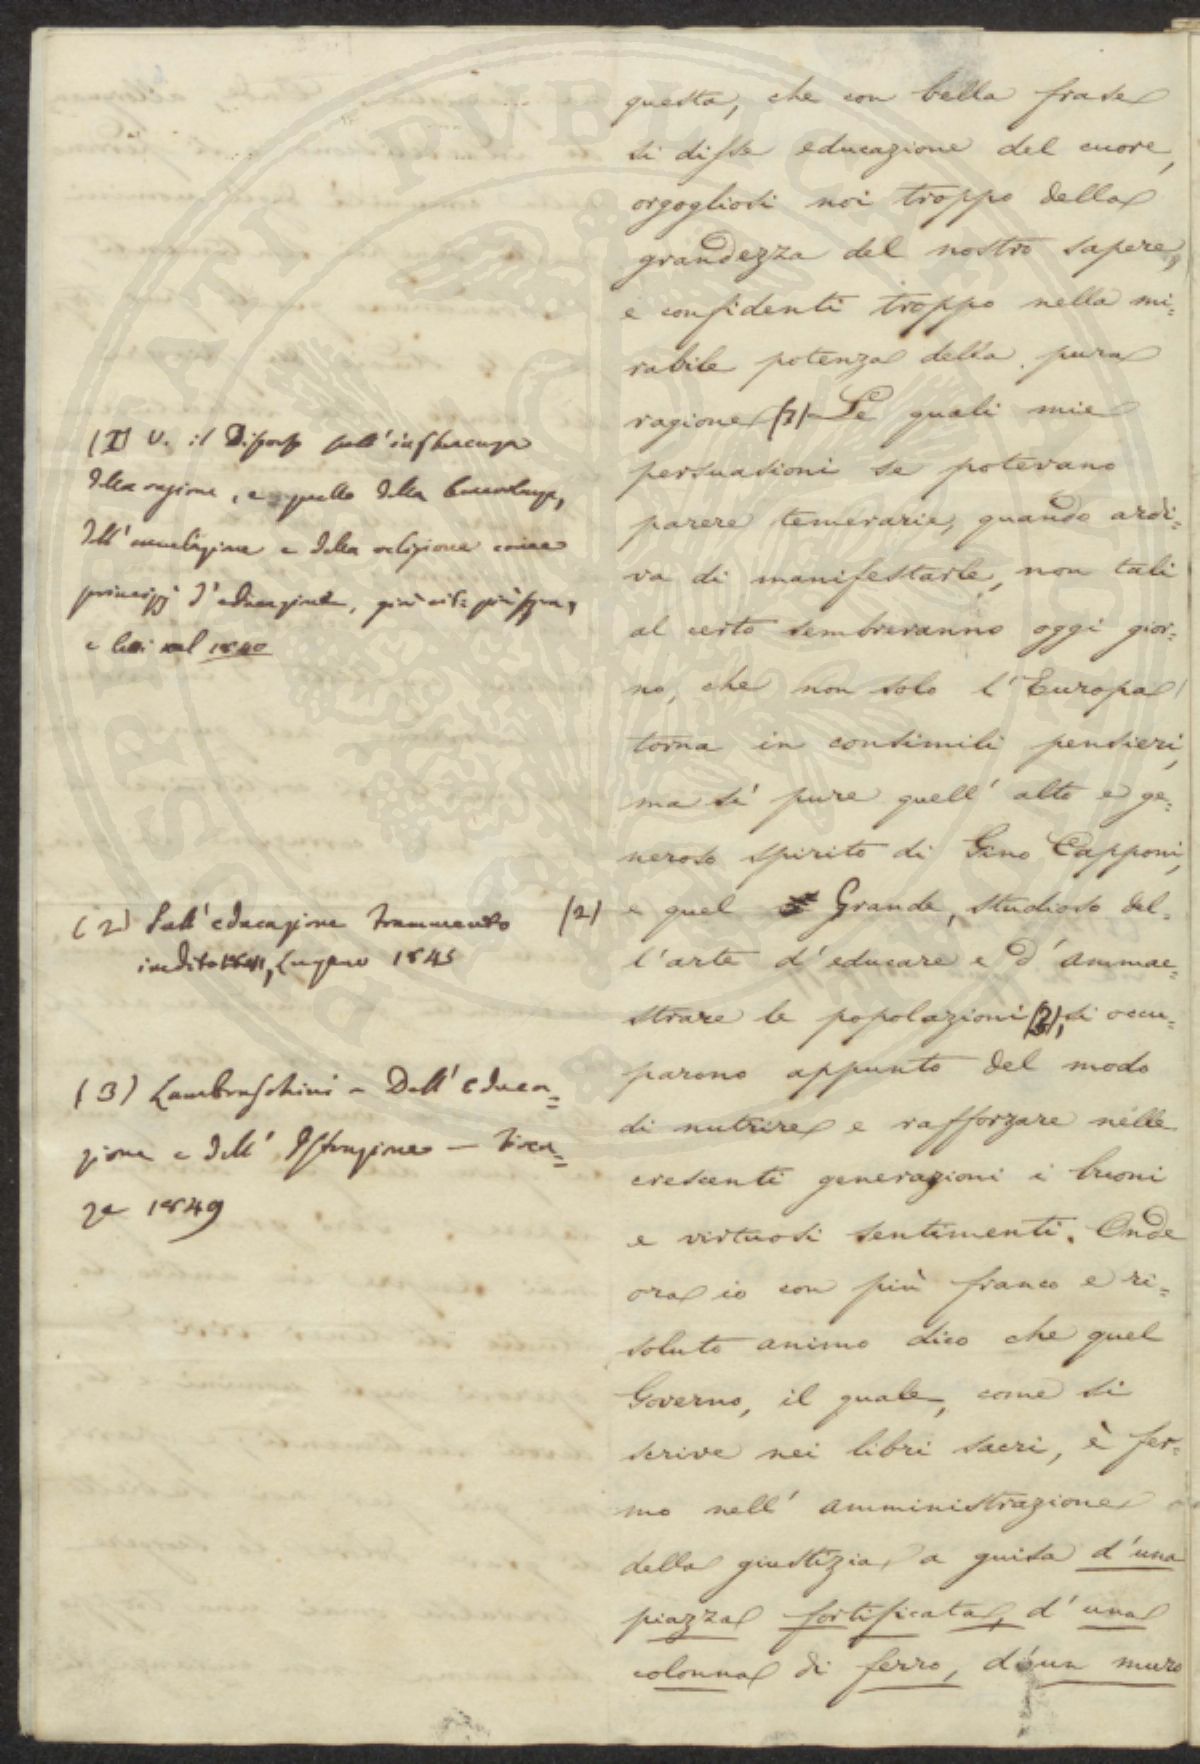 questa, che con bella frase
si disse educazione del cuore,
orgogliosi noi troppo della
grandezza del nostro sapere,
e confidenti troppo nella mi=
rabile potenza della pura
ragione (1) Le quali mie
persuasioni se potevano
parere temerarie, quando ardi=
va di manifestarle, non tali
al certo sembreranno oggi gior=
no, che non solo l'Europa
torna in consimili pensieri,
ma sì pure quell'alto e ge=
neroso spirito di Gino Capponi,
(2) e quel Grande, studioso del=
l'arte d'educare e d'ammae=
strare le popolazioni (3), si occu=
parono appunto del modo
di nutrire e rafforzare nelle
crescenti generazioni i buoni
e virtuosi sentimenti. Onde
ora io con più franco e ri=
soluto animo dico che quel
Governo, il quale, come si
scrive nei libri sacri, è fer=
mo nell'amministrazione
della giustizia a guisa d'una
piazza fortificata, d'una
colonna di ferro, d'un muro
(1) V. il Discorso sull'influenza
della ragione, e quello della
dell'emulazione e della religione come
principj d'educazione, già
e letti nel 1840
(2) Sull'educazione Frammento
inedito 1841, Lugano 1845
(3) Lambruschini - Dell'Educa=
zione e dell'Istruzione - Firen=
ze 1849
PVBLICI